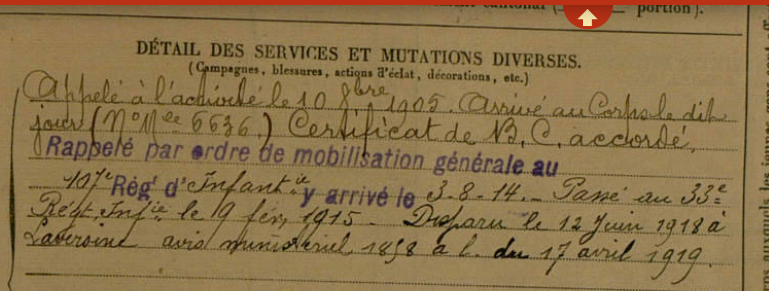 portion).
DÉTAIL DES SERVICES ET MUTATIONS DIVERSES.
(Campagnes, blessures, actions d'éclat, décorations, etc.)
Appelé à l'activité le 10 8bre 1905. Arrivé au Corps le dit
jour (No Mle 6636.) Certificat de B. C. accordé,
Rappelé par ordre de mobilisation générale au
107e Régt d'Infantie y arrivé le 3-8-14. - Passé au 33e
Régt Infie le 9 fév, 1915 - Disparu le 12 Juin 1918 à
Laversine avis ministériel 1858 a l. du 17 avril 1919.